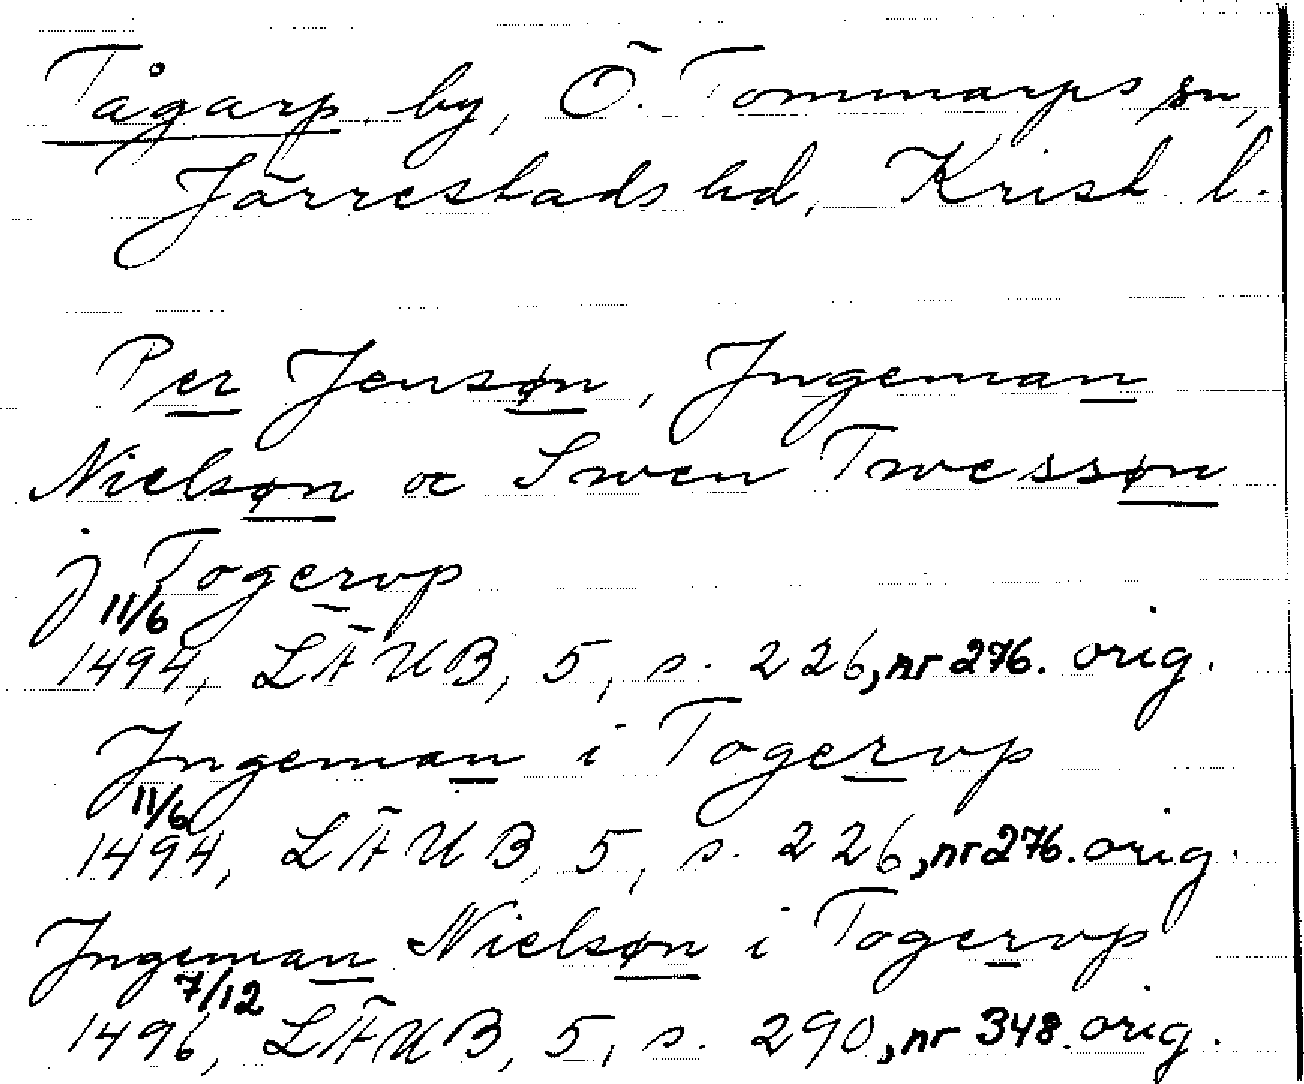 Tågarp by, Ö. Tommarps sn,
Järrestads hd, Krist. l.
Per Jensøn, Jngeman
Nielsøn oc Swen Twessøn
j Togerup
11/6
1494, LÄUB, 5, s. 226, nr 276. orig.
Jngeman i Togerup
11/6
1494, LÄUB, 5, s. 226, nr 276. orig.
Jngeman Nielsøn i Togerup
7/12
1496, LÄUB, 5, s. 290, nr 348. orig.